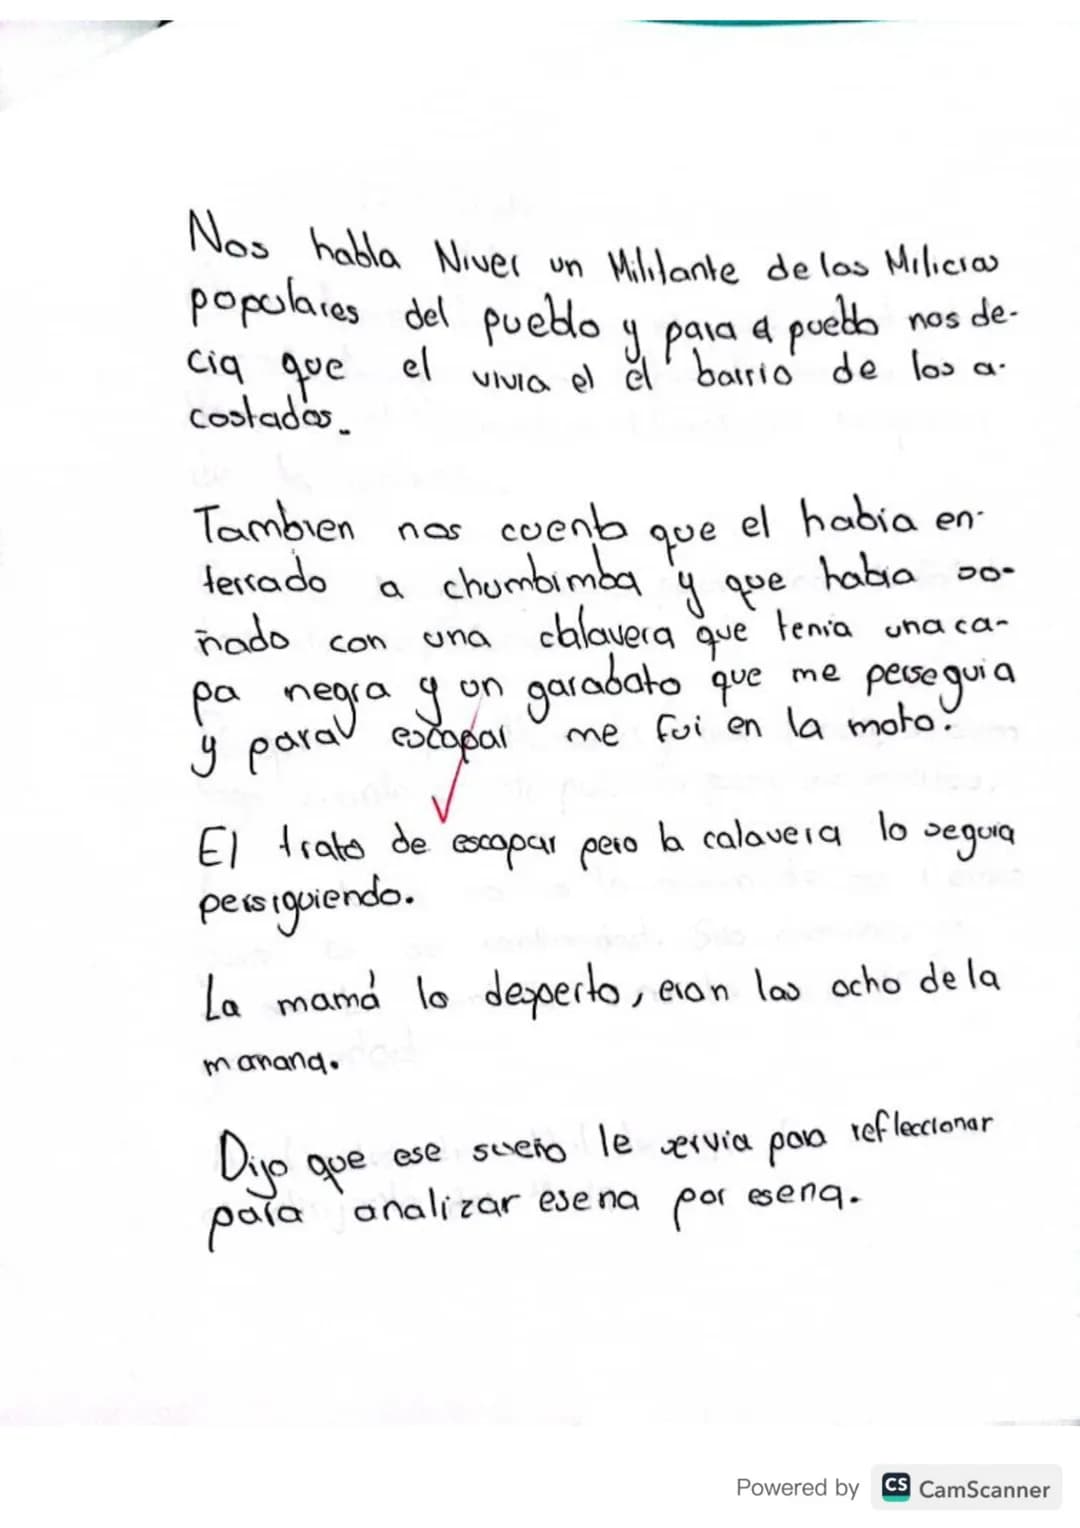 Nos habla Niver un Mililante de las Milicias
populares del pueblo y para el pueblo nos de-
cia que el vivia el él barrio de los a-
costados.
Tambien nos cuenta que el habia en-
terrado a chumbimba y que habia so-
ñado con una calavera que tenia una ca-
pa negra y un garabato que me perseguia
y para escapar me fui en la moto.
El trato de escapar pero la calavera lo seguia
persiguiendo.
La mamá lo desperto, eran las ocho de la
manana.
Dijo que ese sueño le servia para refleccionar
para analizar esena por esena.
Powered by CS CamScanner